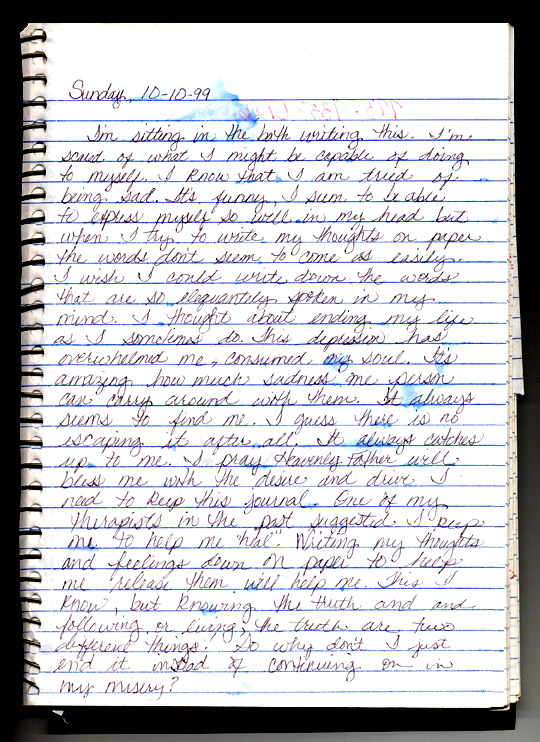 Sunday, 10-10-99
I'm sitting in the bath writing this. I'm
scared of what I might be capable of doing
to myself. I know that I am tried of
being sad. It's funny, I seem to be able
to express myself so well in my head but
when I try to write my thoughts on paper
the words don't seem to come as easily.
I wish I could write down the words
that are so elequantely spoken in my
mind. I thought about ending my life
as I sometimes do. This depression has
overwhelmed me, consumed my soul. It's
amazing how much sadness one person
can carry around with them. It always
seems to find me. I guess there is no
escaping it after all. It always catches
up to me. I pray Heavenly Father will
bless me with the desire and drive I
need to keep this journal. One of my
therapists in the past suggested I keep
one to help me "heal". Writing my thoughts
and feelings down on paper to help
me release them will help me. This I
know, but knowing the truth and and
following, or living, the truth are two
different things. So why don't I just
end it instead of continuing on in
my misery?